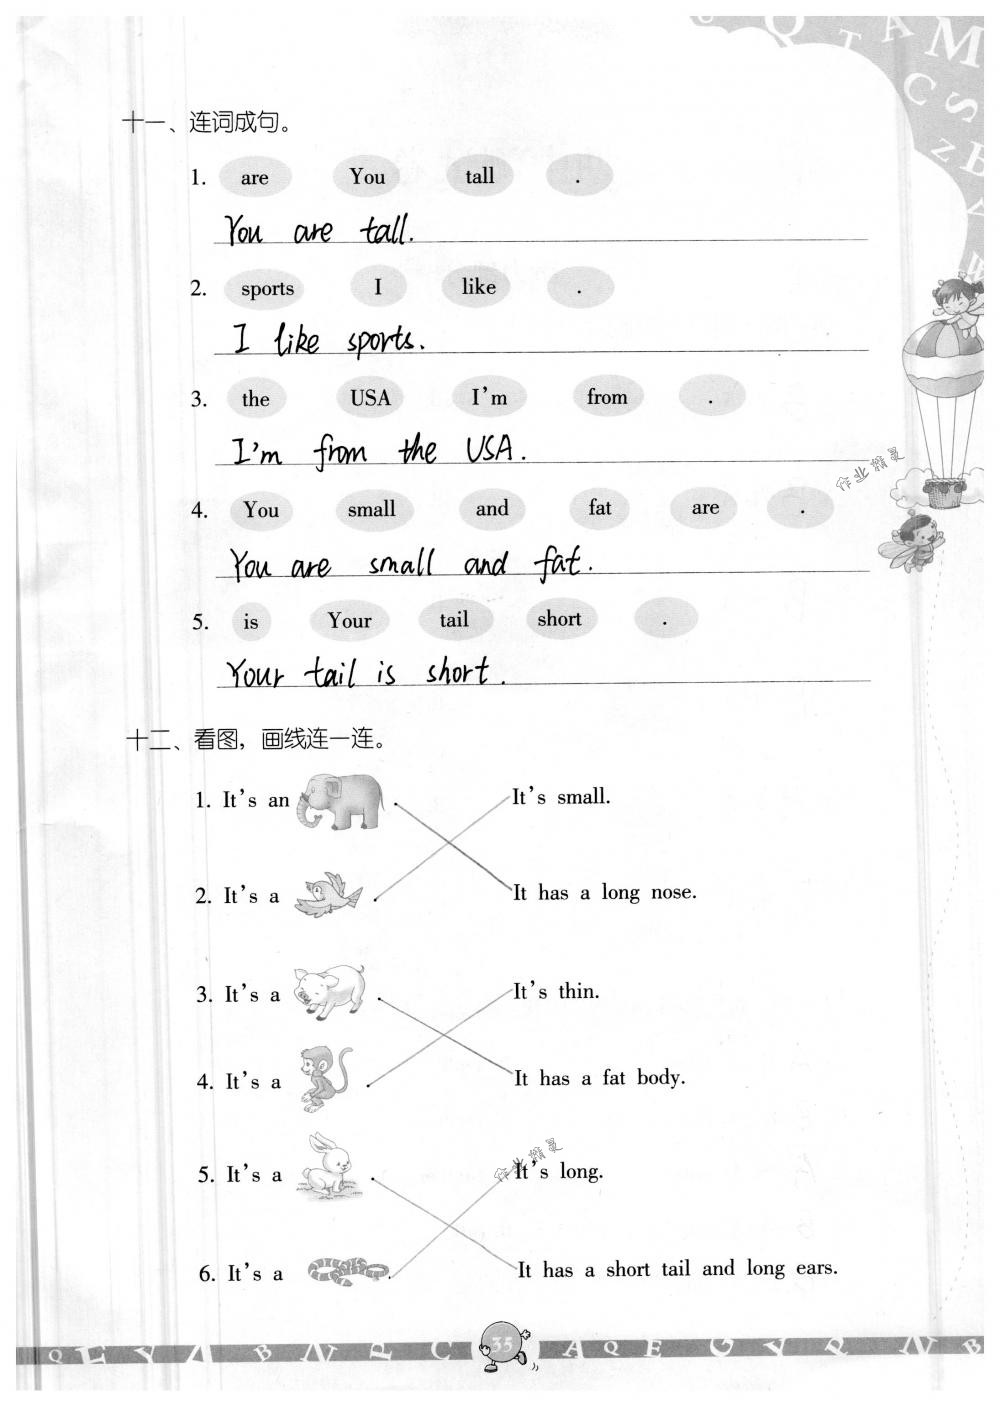 十一、连词成句。
1. are You tall .
You are tall.
2. sports I like .
I like sports.
3. the USA I'm from .
I'm from the USA.
作业精灵
4. You small and fat are .
You are small and fat.
5. is Your tail short .
Your tail is short.
十二、看图，画线连一连。
1. It's an It's small.
2. It's a It has a long nose.
3. It's a It's thin.
4. It's a It has a fat body.
作业精灵
5. It's a It's long.
6. It's a It has a short tail and long ears.
35